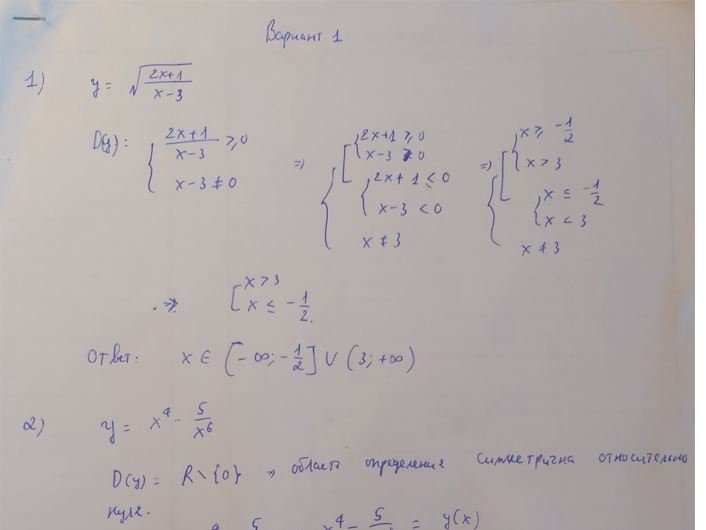 Вариант 1
1) y = √((2x+1)/(x-3))
D(y): { (2x+1)/(x-3) ≥ 0 ; x-3 ≠ 0 => { [ { 2x+1 ≥ 0 ; x-3 > 0 ; { 2x+1 ≤ 0 ; x-3 < 0 ; x ≠ 3 => { [ { x ≥ -1/2 ; x > 3 ; { x ≤ -1/2 ; x < 3 ; x ≠ 3
=> [ x > 3 ; x ≤ -1/2.
Ответ: x ∈ (-∞; -1/2] ∪ (3; +∞)
2) y = x⁴ - 5/x⁶
D(y) = R \ {0} => область определения симметрична относительно
нуля.
x⁴ - 5/ = y(x)